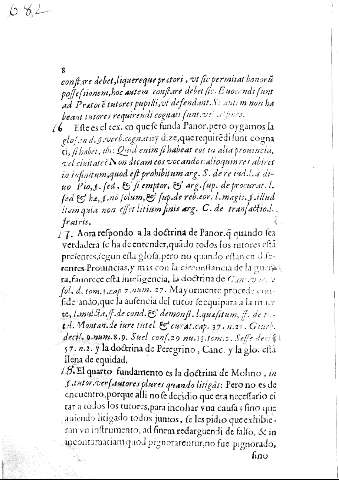 682
8
constare debet, liquereque pretori, vt sic permitat bonorũ
possessionem, hoc autem constare debet sic. Euocandi sunt
ad Pretorẽ tutores pupilli, vt defendant. Si autem non ha
beant tutores requirendi cognati sunt,
16 Este es el tex. en que se funda Panor. pero oygamos la
glos. in d. §. verb. cognati, dize, que requirẽdi sunt cogna
ti, si habet, ibi: Quid enim si habeat eos in alia prouincia,
vel ciuitate? Non dicam eos vocandos: alioquin res abiret
in infinitum, quod est prohibitum arg. S. de re iud. l. a di-
uo Pio, §. sed, & si emptor, & arg. sup. de procurat. l.
sed & hæ, §. no solum, & sup. de reb. cor. l. magis, §. illud
item quia non esset litium finis arg. C. de transactio. l.
fratris.
17. Aora respondo a la doctrina de Panor. q̃ quando sea
verdadera se ha de entender, quãdo todos los tutores estã
presentes, segun esta glosa, pero no quando estan en dife-
rentes Prouincias, y mas con la circunstancia de la guer-
ra, fauorece esta inteligencia, la doctrina de
sol. d. tom. 1. cap. 7. num. 27. Mayormente procede con-
siderando, que la ausencia del tutor se equipara a la muer
te, l. mulcta, ff. de cond. & demonst. l. quæsitum, ff. de
Montan. de iure tutel & curat. cap. 37. n. 21.
decis. 9. num. 8. 9. Suel. cons. 29. nu. 13. tom. 2. Sesse dec.
57. n. 2. y la doctrina de Peregrino, Canc. y la glos. està
llena de equidad.
18. El quarto fundamento es la doctrina de Molino, in
§. tutor. vers. tutores plures quando litigãt: Pero no es de
encuentro, porque alli no se decidio que era necessario ci
tar a todos los tutores, para incohar vna causa; sino que
auiendo litigado todos juntos, se les pidio que exhibies-
san vn instrumento, ad finem redarguendi de falso, & in
incontamiaciam quod pignorarentur, no fue pignorado,
sino